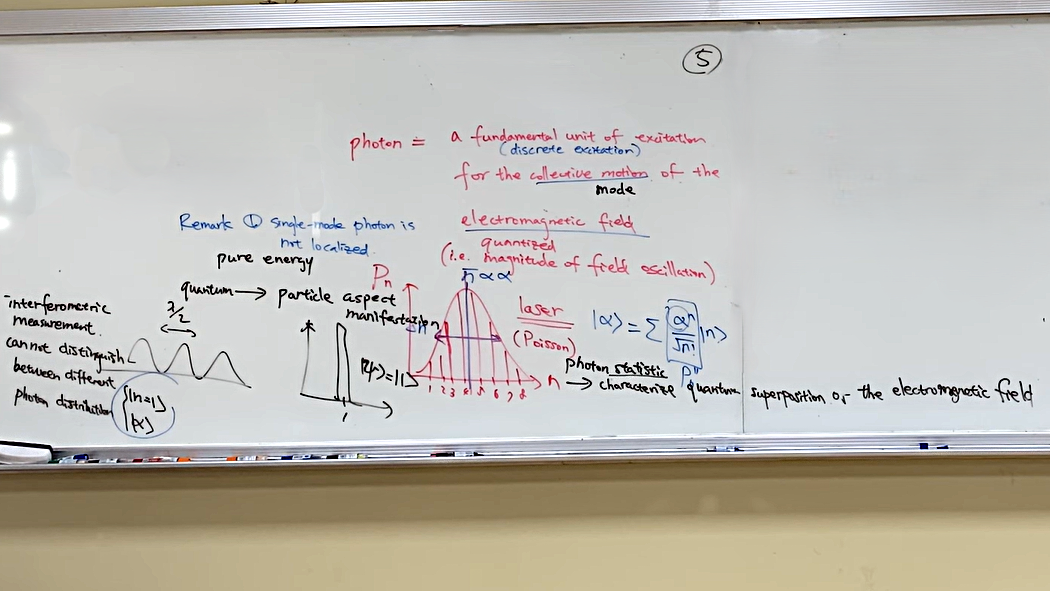 ⑤
photon = a fundamental unit of excitation
(discrete excitation)
for the collective motion of the
mode
electromagnetic field
quantized
(i.e. magnitude of field oscillation)
Remark ① single-mode photon is
not localized.
pure energy
quantum → particle aspect
manifestation
interferometric
measurement.
cannot distinguish
between different
photon distribution
|n=1>
|α>
λ/2
1
|ψ>=|1>
Pn
n̄ ∝ α
1 2 3 4 5 6 7 8
n
laser
(Poisson)
|α> = Σ αⁿ/√n! |n>
Pn
photon statistic
→ characterize quantum superposition of the electromagnetic field